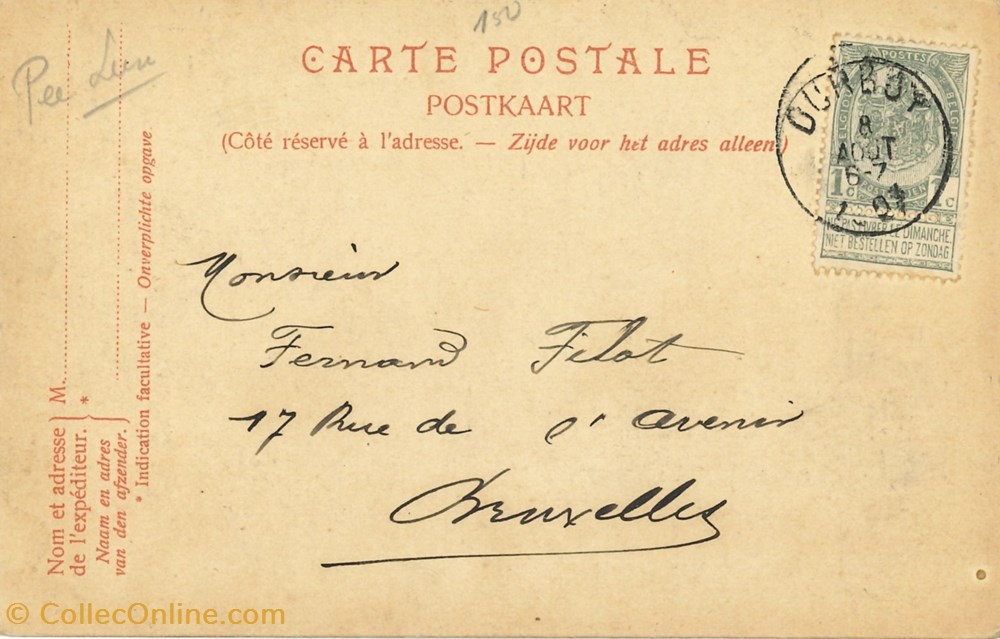 150
Pee
CARTE POSTALE
POSTKAART
(Côté réservé à l'adresse. — Zijde voor het adres alleen)
DURBUY
8
AOUT
6-7
POSTES
1c 1c
NE PAS LIVRER LE DIMANCHE
NIET BESTELLEN OP ZONDAG
Monsieur
Fernand Filot
17 Rue de l'avenir
Bruxelles
Nom et adresse de l'expéditeur. } M. *
Naam en adres van den afzender.
* Indication facultative — Onverplichte opgave
© CollecOnline.com